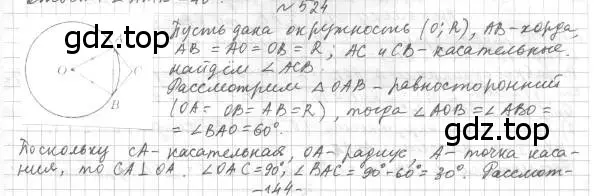 № 524
Пусть дана окружность (O; R), AB - хорда,
AB = AO = OB = R; AC и CB - касательные.
найдём ∠ACB.
Рассмотрим △OAB - равносторонний
(OA = OB = AB = R), тогда ∠AOB = ∠ABO =
= ∠BAO = 60°.
Поскольку CA - касательная, OA - радиус, A - точка каса-
ния, то CA ⊥ OA. ∠OAC = 90°, ∠BAC = 90° - 60° = 30°. Рассмот-
-144-
O
A
C
B
gdz.top
gdz.top
gdz.top
gdz.top